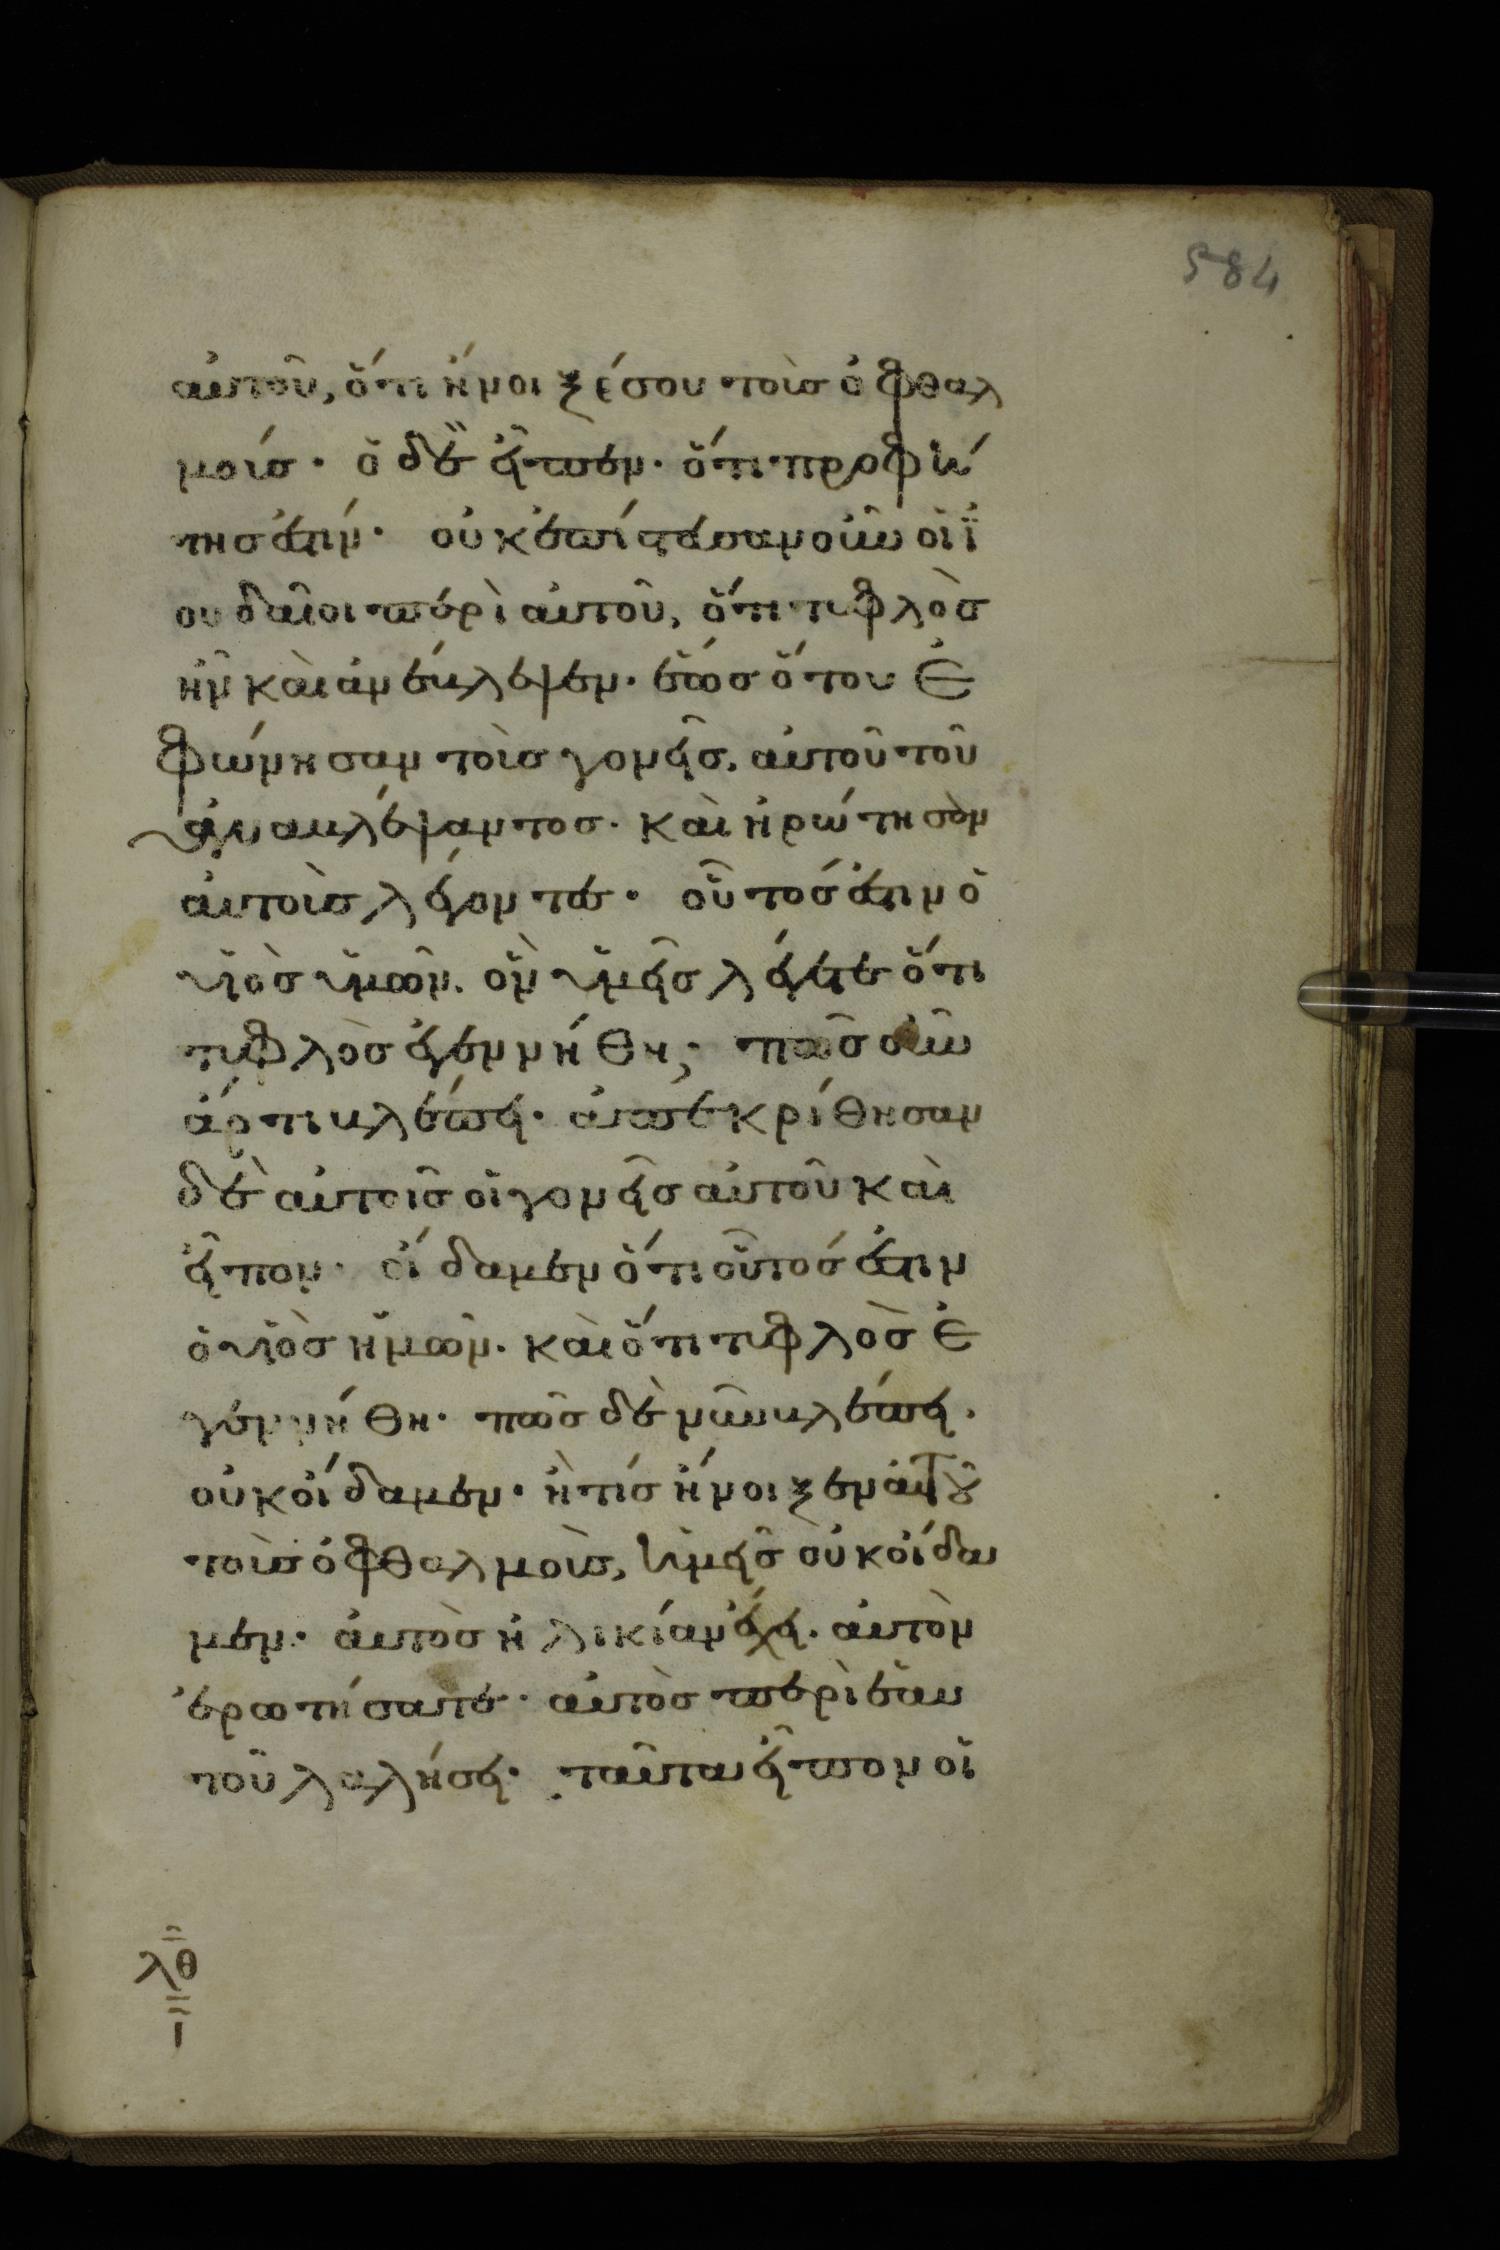 584
αὐτοῦ, ὅτι ἤνοιξέ σου τοὺσ ὀφθαλ
μούσ· ὁ δὲ εἶπεν· ὅτι προφή
τησ ἐστίν· οὐκ ἐπίστευσαν οὖν οἱ ϊ
ουδαῖοι περὶ αὐτοῦ, ὅτι τυφλὸσ
ἦν καὶ ἀνέβλεψεν· ἕωσ ὅτου ἐ
φώνησαν τοὺσ γονεῖσ, αὐτοῦ τοῦ
ἀναβλέψαντοσ· καὶ ἠρώτησὰν
αὐτοὺσ λέγοντεσ· οὗτόσ ἐστιν ὁ
υἱὸσ ὑμῶν. ὃν ὑμεῖσ λέγετε ὅτι
τυφλὸσ ἐγεννήθη; πῶσ οὖν
ἄρτι βλέπει· ἀπεκρίθησαν
δὲ αὐτοῖσ οἱ γονεῖσ αὐτοῦ καὶ
εἶπον· οἴδαμεν ὅτι οὗτόσ ἐστιν
ὁ υἱὸσ ἡμῶν. καὶ ὅτι τυφλὸσ ἐ
γεννήθη· πῶσ δὲ νῦν βλέπει.
οὐκ οἴδαμεν· ἢ τίσ ἤνοιξεν αὐτοῦ
τοὺσ ὀφθαλμοὺσ, ἡμεῖσ οὐκ οἴδα
μεν· αὐτὸσ ἡλικίαν ἔχει. αὐτὸν
ἐρωτήσατε· αὐτὸσ περὶ ἑαυ
τοῦ λαλήσει· ταῦτα εἶπον οἱ
λθ